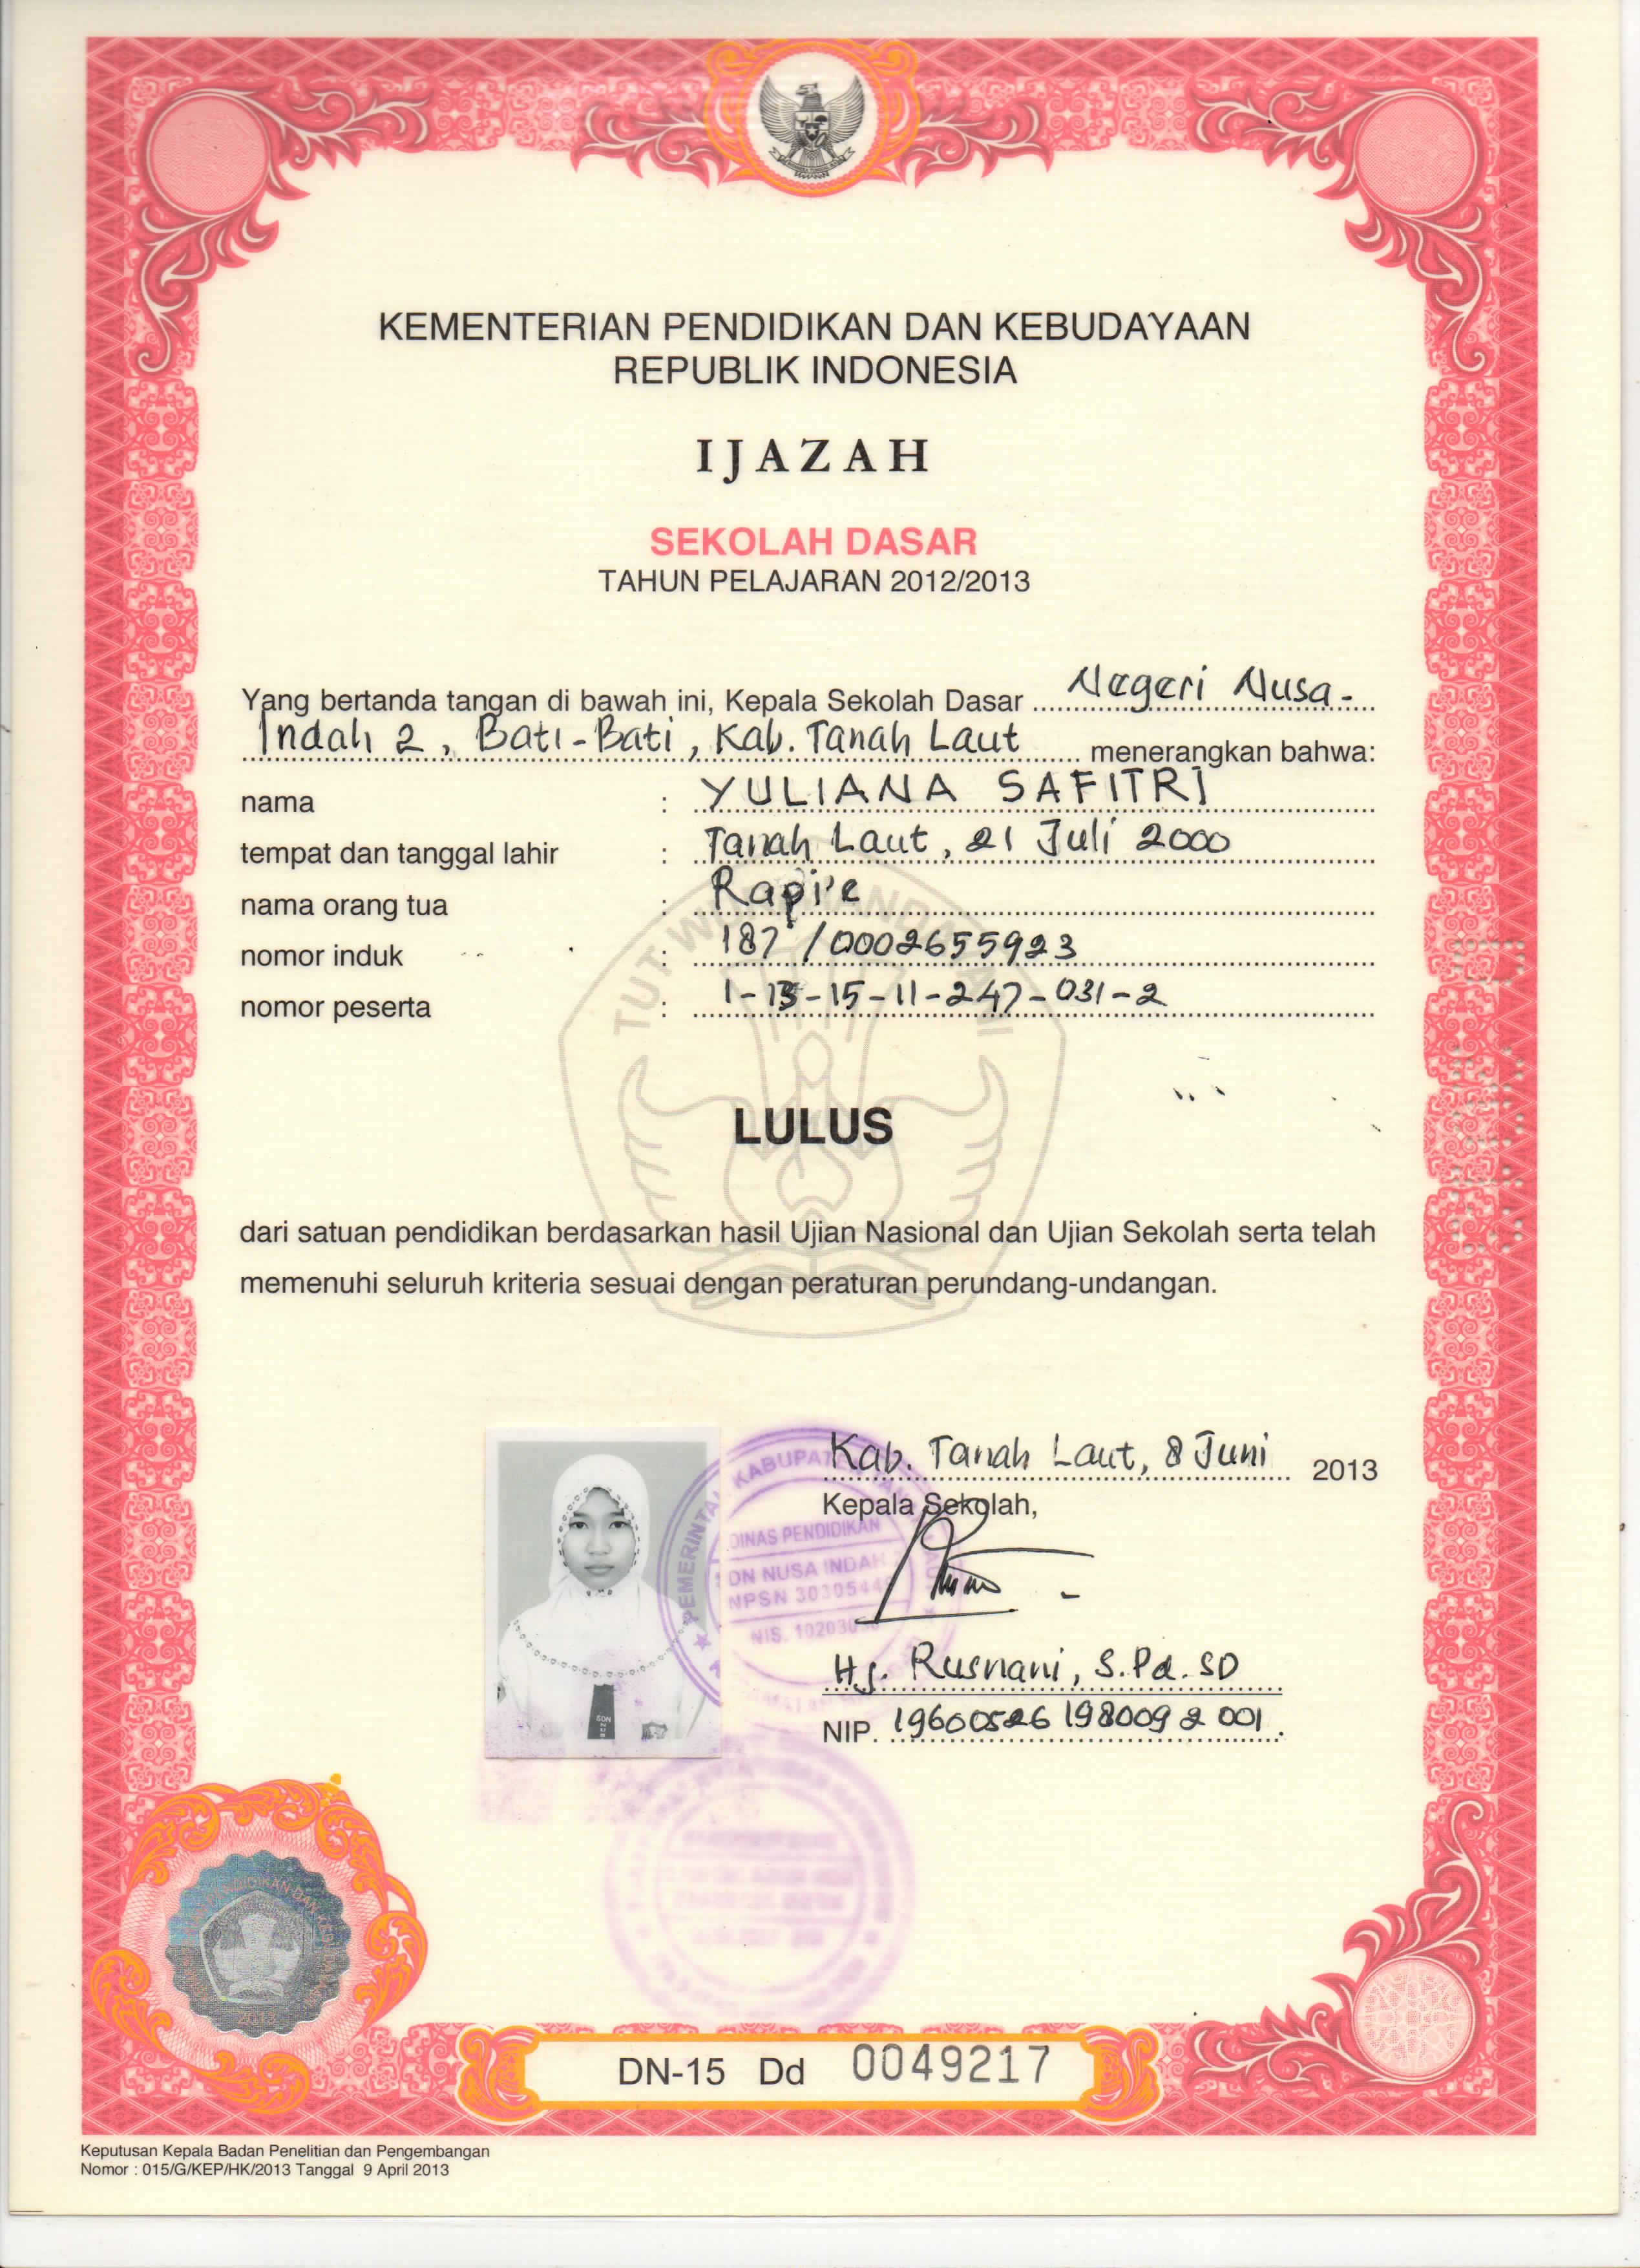 KEMENTERIAN PENDIDIKAN DAN KEBUDAYAAN
REPUBLIK INDONESIA
IJAZAH
SEKOLAH DASAR
TAHUN PELAJARAN 2012/2013
Yang bertanda tangan di bawah ini, Kepala Sekolah Dasar Negeri Nusa-
Indah 2, Bati-Bati, Kab. Tanah Laut menerangkan bahwa:
nama : YULIANA SAFITRI
tempat dan tanggal lahir : Tanah Laut, 21 Juli 2000
nama orang tua : Rapi'e
nomor induk : 187 / 0002655923
nomor peserta : 1-13-15-11-247-031-2
TUT WURI HANDAYANI
LULUS
dari satuan pendidikan berdasarkan hasil Ujian Nasional dan Ujian Sekolah serta telah
memenuhi seluruh kriteria sesuai dengan peraturan perundang-undangan.
Kab. Tanah Laut, 8 Juni 2013
Kepala Sekolah,
PEMERINTA KABUPAT
DINAS PENDIDIKAN
NUSA INDAH
NPSN
NIS.
SDN
Hj. Rusnani, S.Pd.SD
NIP. 19600526 198009 2 001.
2013
DN-15 Dd 0049217
Keputusan Kepala Badan Penelitian dan Pengembangan
Nomor : 015/G/KEP/HK/2013 Tanggal 9 April 2013